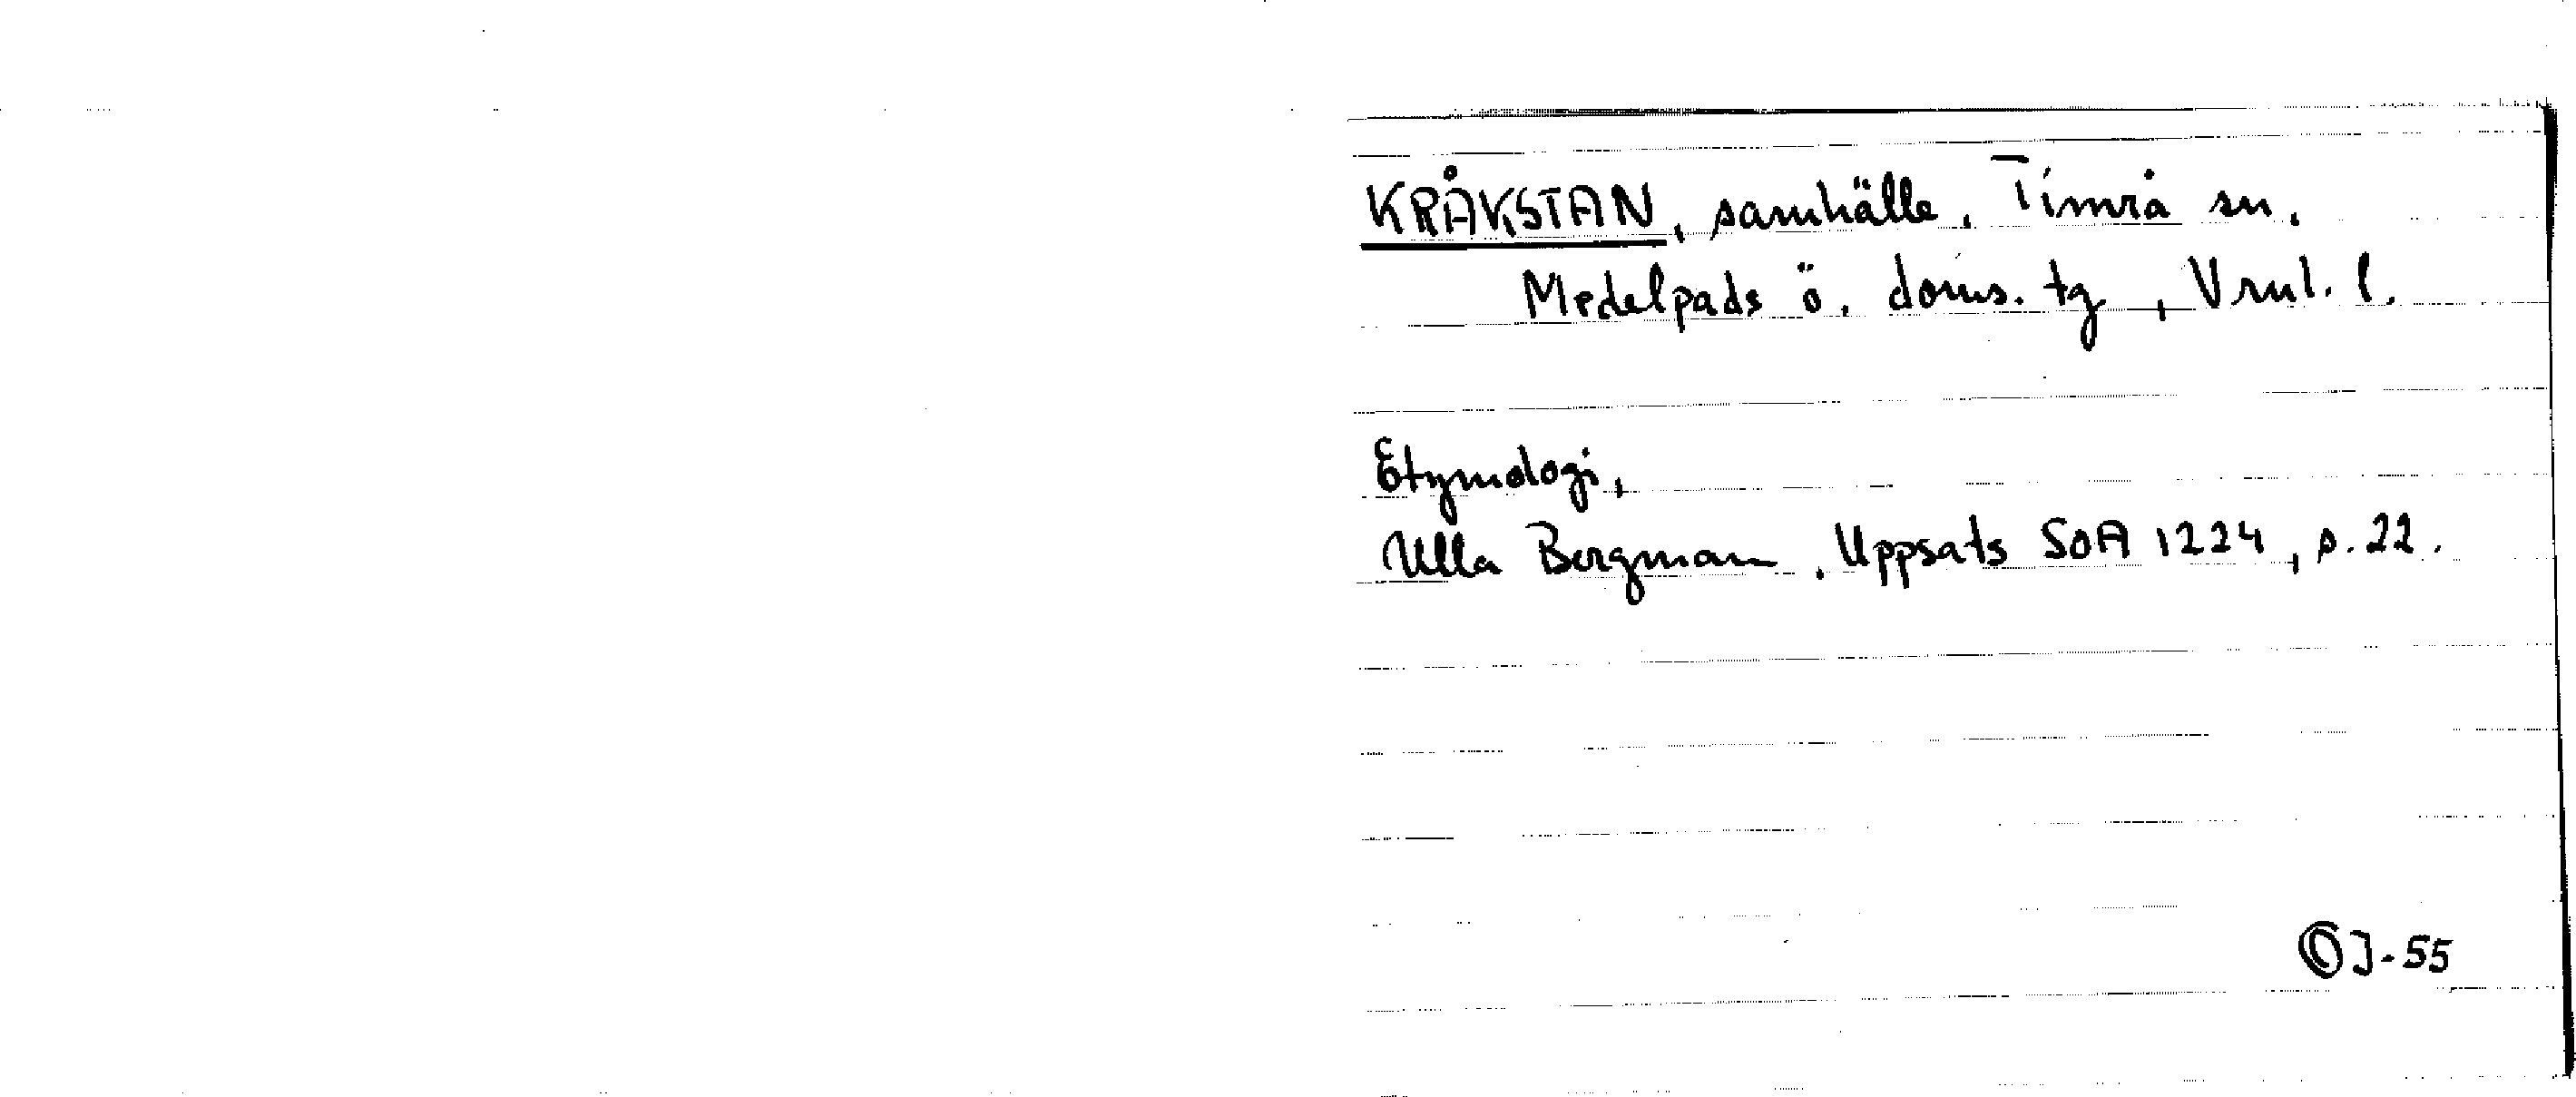 KRÅKSTAN, samhälle, Timrå sn,
Medelpads ö. doms. tg, Vrnl. l.
Etymologi,
Ulla Bergman, Uppsats SOA 1224, s. 22.
OJ-55